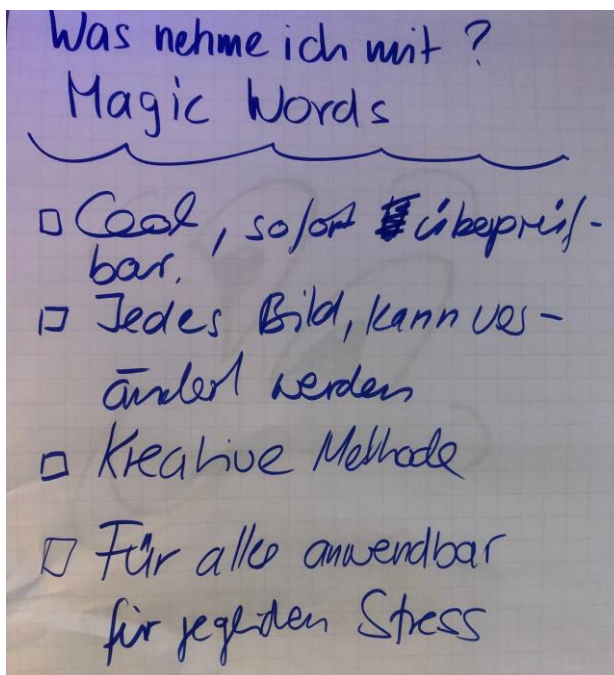 Was nehme ich mit?
Magic Words
Cool, sofort überprüf-
bar.
Jedes Bild, kann ver-
ändert werden
Kreative Methode
Für alle anwendbar
für jegliden Stress